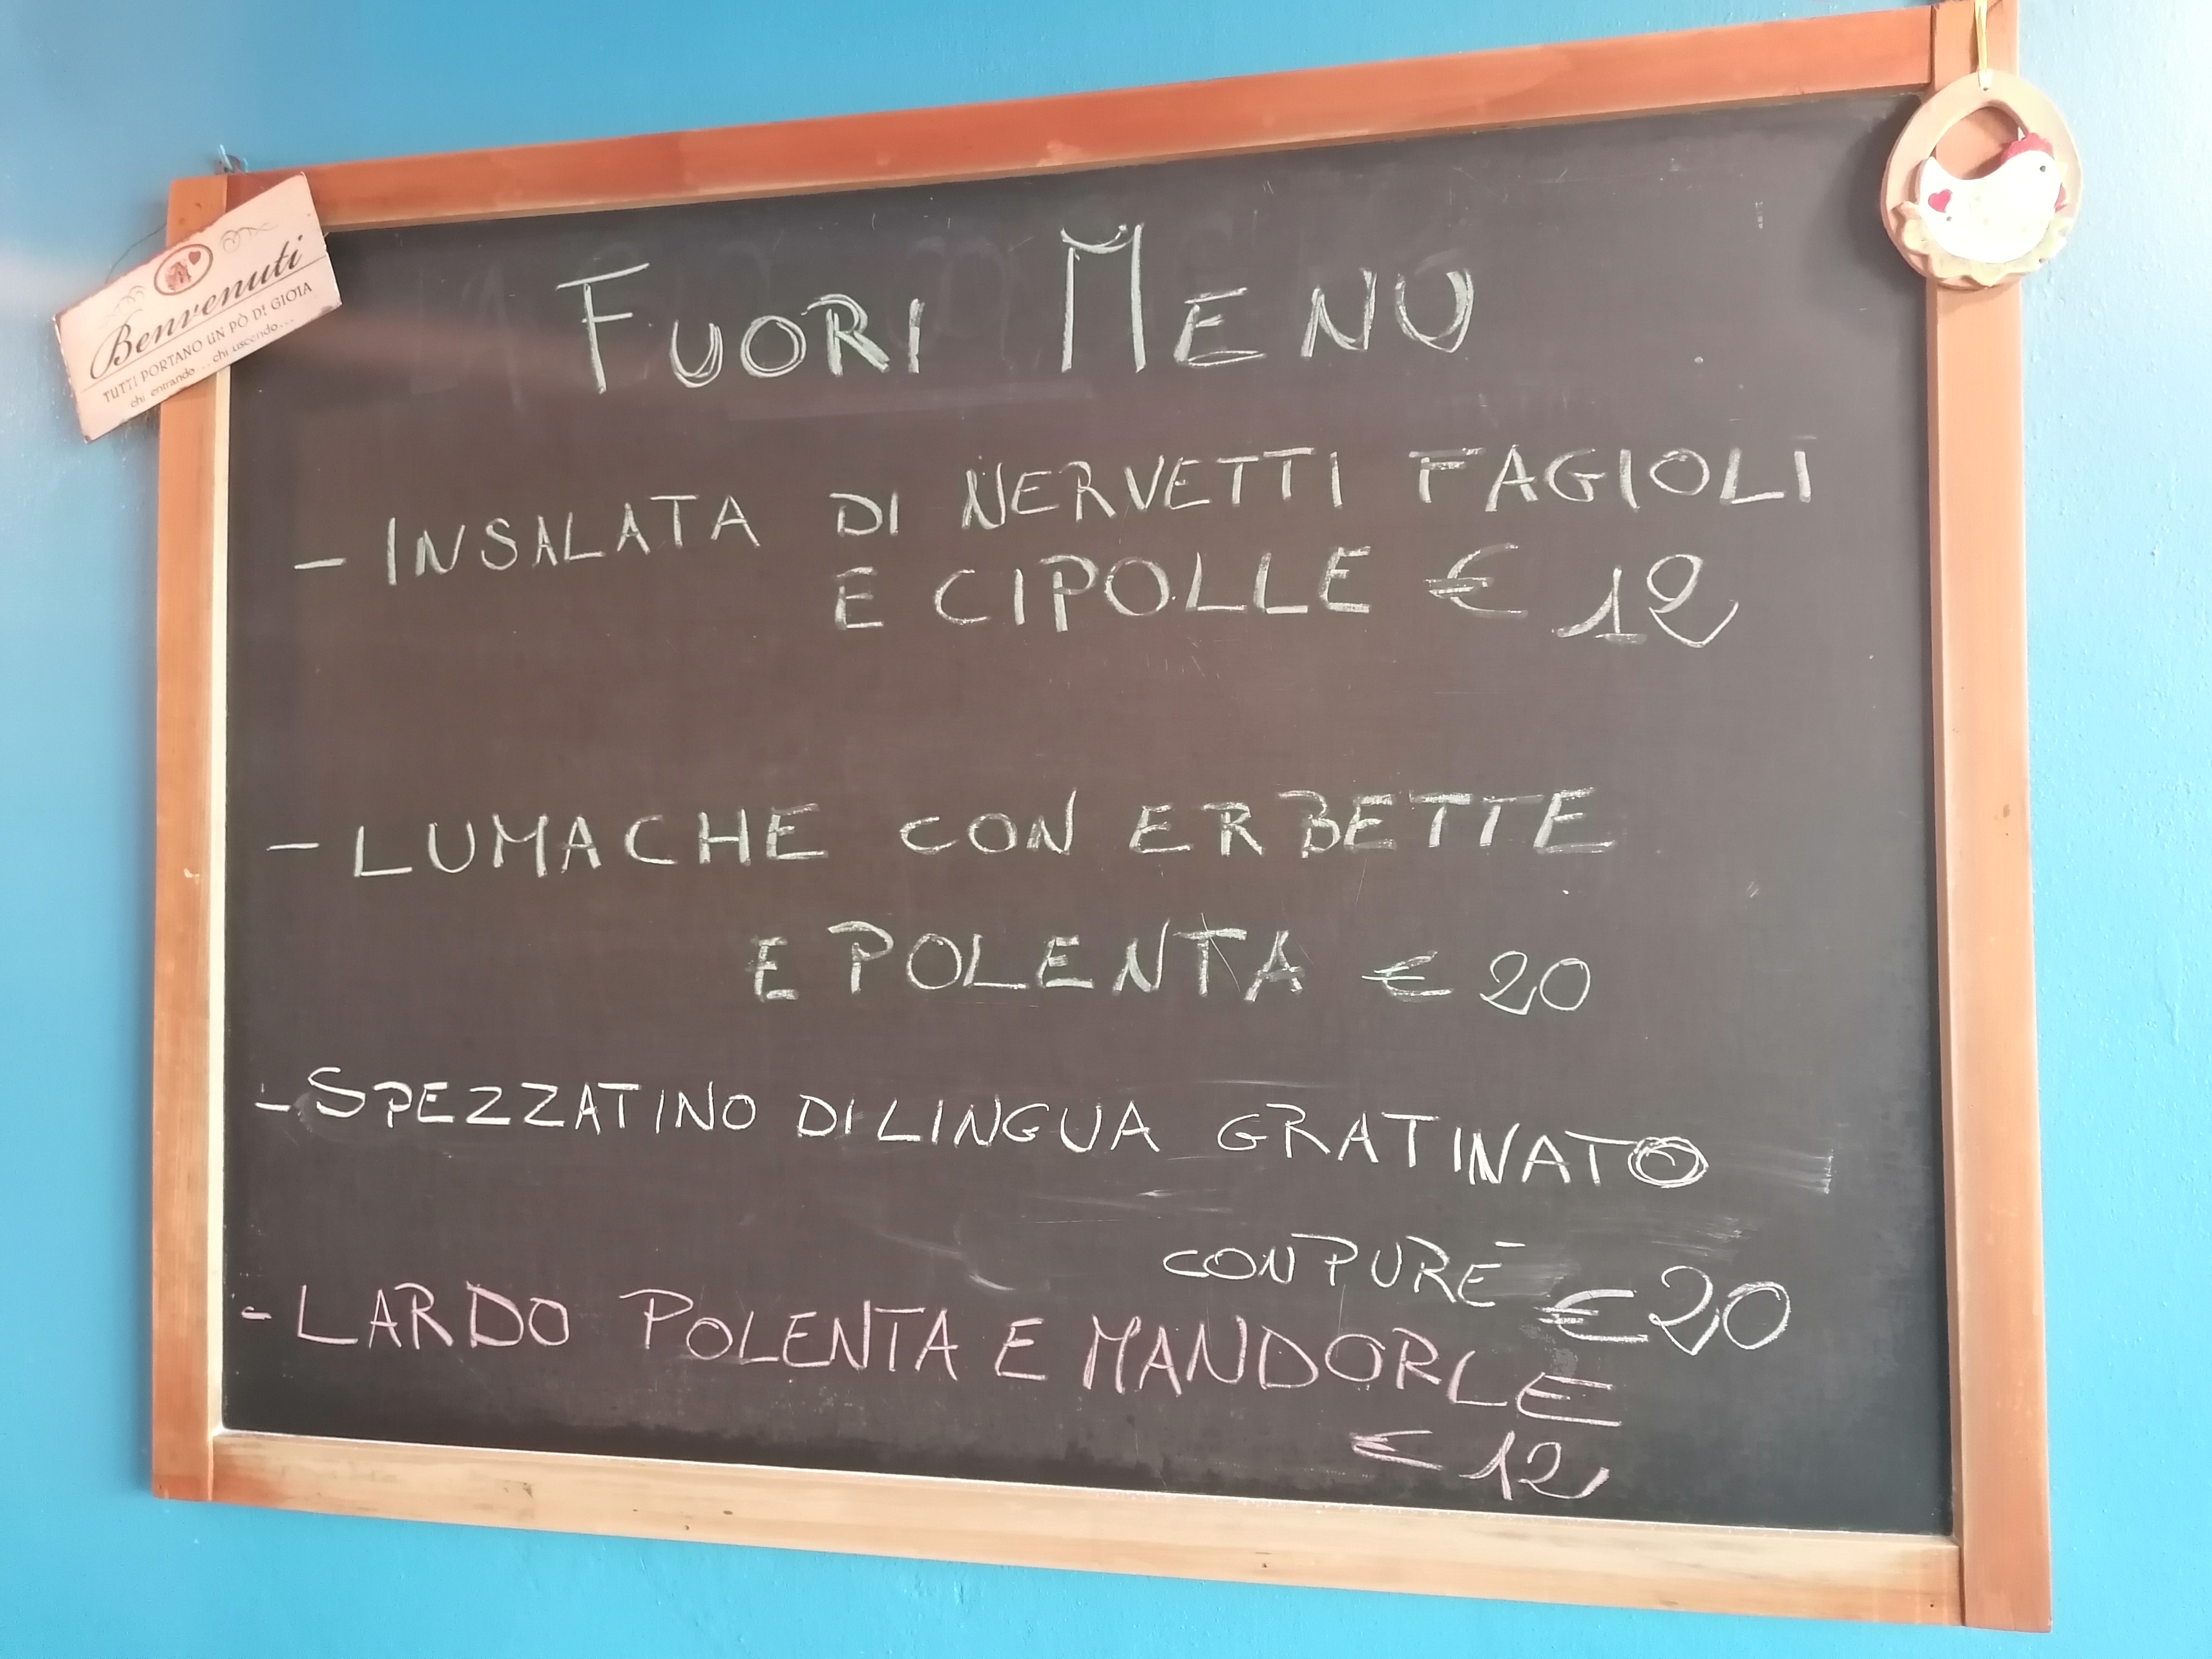 Benvenuti
TUTTI PORTANO UN PÒ DI GIOIA
chi entrando... chi uscendo...
FUORI MENU
- INSALATA DI NERVETTI FAGIOLI
E CIPOLLE € 12
- LUMACHE CON ERBETTE
E POLENTA € 20
- SPEZZATINO DI LINGUA GRATINATO
CON PURÈ €20
- LARDO POLENTA E MANDORLE
€ 12